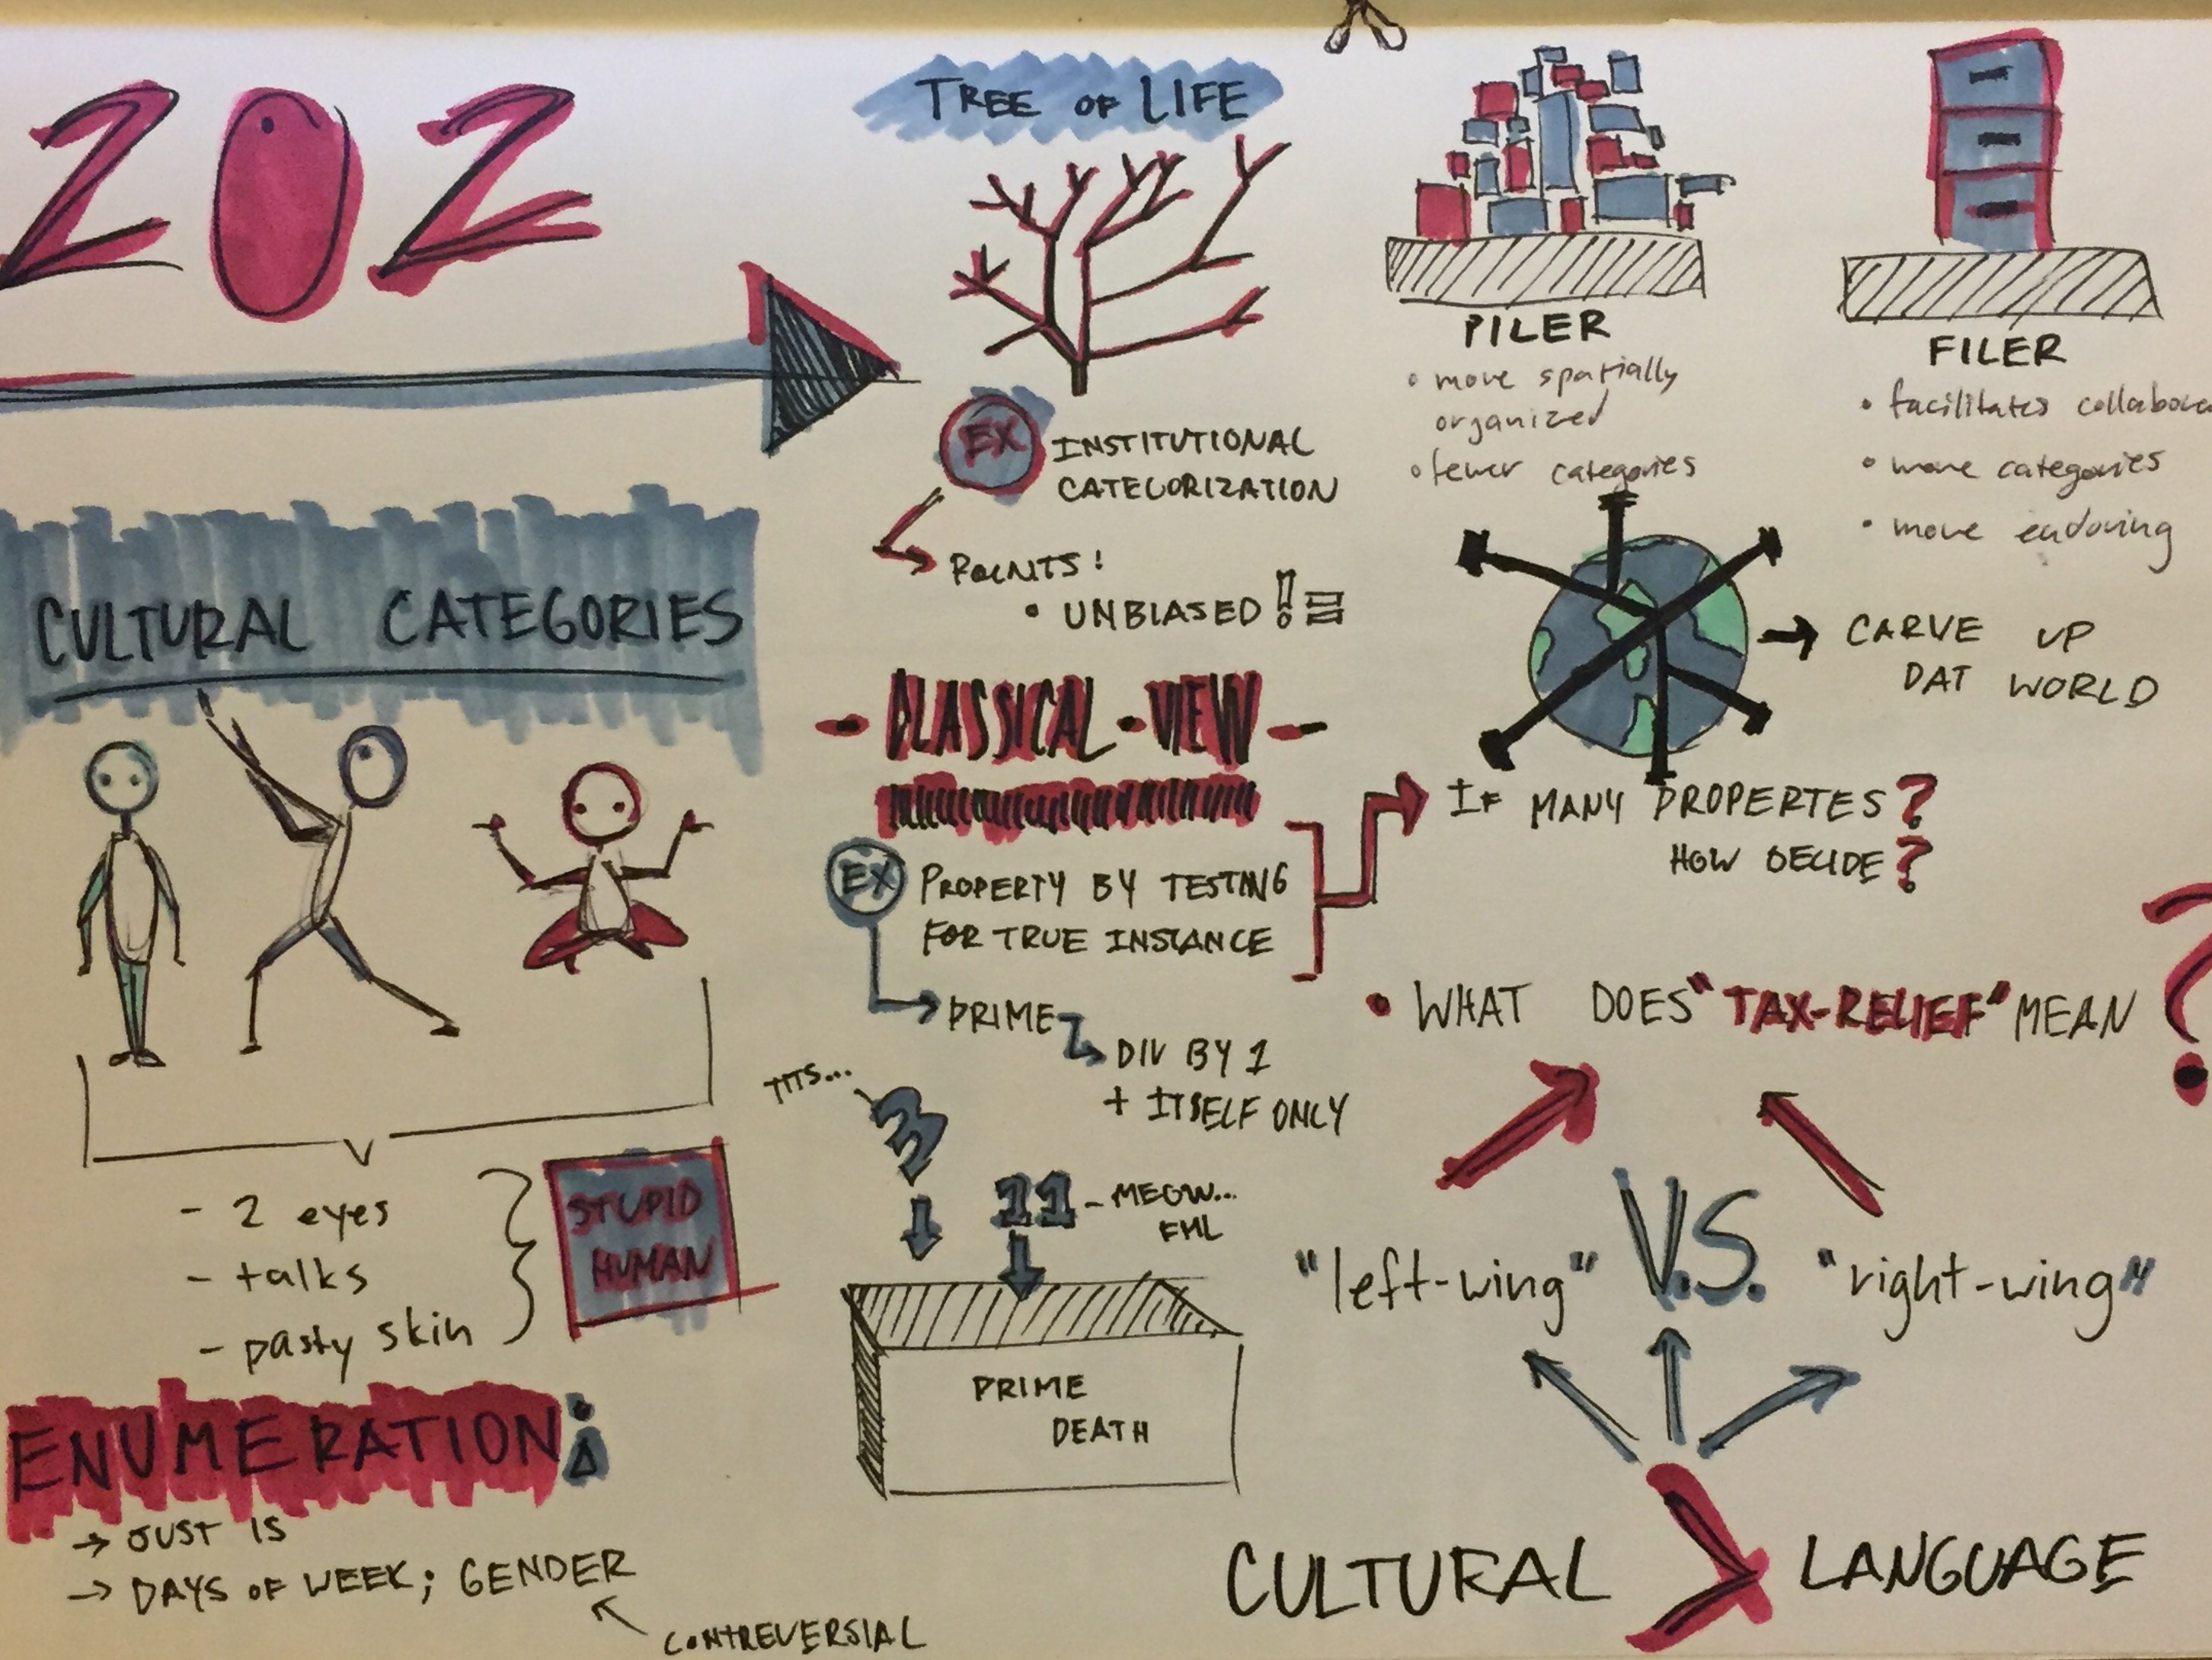 202
CULTURAL CATEGORIES
- 2 eyes
- talks
- pasty skin
STUPID
HUMAN
ENUMERATION:
→ JUST IS
→ DAYS OF WEEK; GENDER
CONTREVERSIAL
TREE OF LIFE
EX
INSTITUTIONAL
CATEGORIZATION
POINTS!
• UNBIASED!
- CLASSICAL • VIEW -
EX
PROPERTY BY TESTING
FOR TRUE INSTANCE
PRIME
DIV BY 1
+ ITSELF ONLY
3
11 - MEOW...
FML
PRIME
DEATH
PILER
• more spatially
organized
• fewer categories
FILER
• facilitates
• more categories
• more enduring
→ CARVE UP
DAT WORLD
IF MANY PROPERTES?
HOW DECIDE?
• WHAT DOES "TAX-RELIEF" MEAN?
"left-wing" V.S. "right-wing"
CULTURAL > LANGUAGE